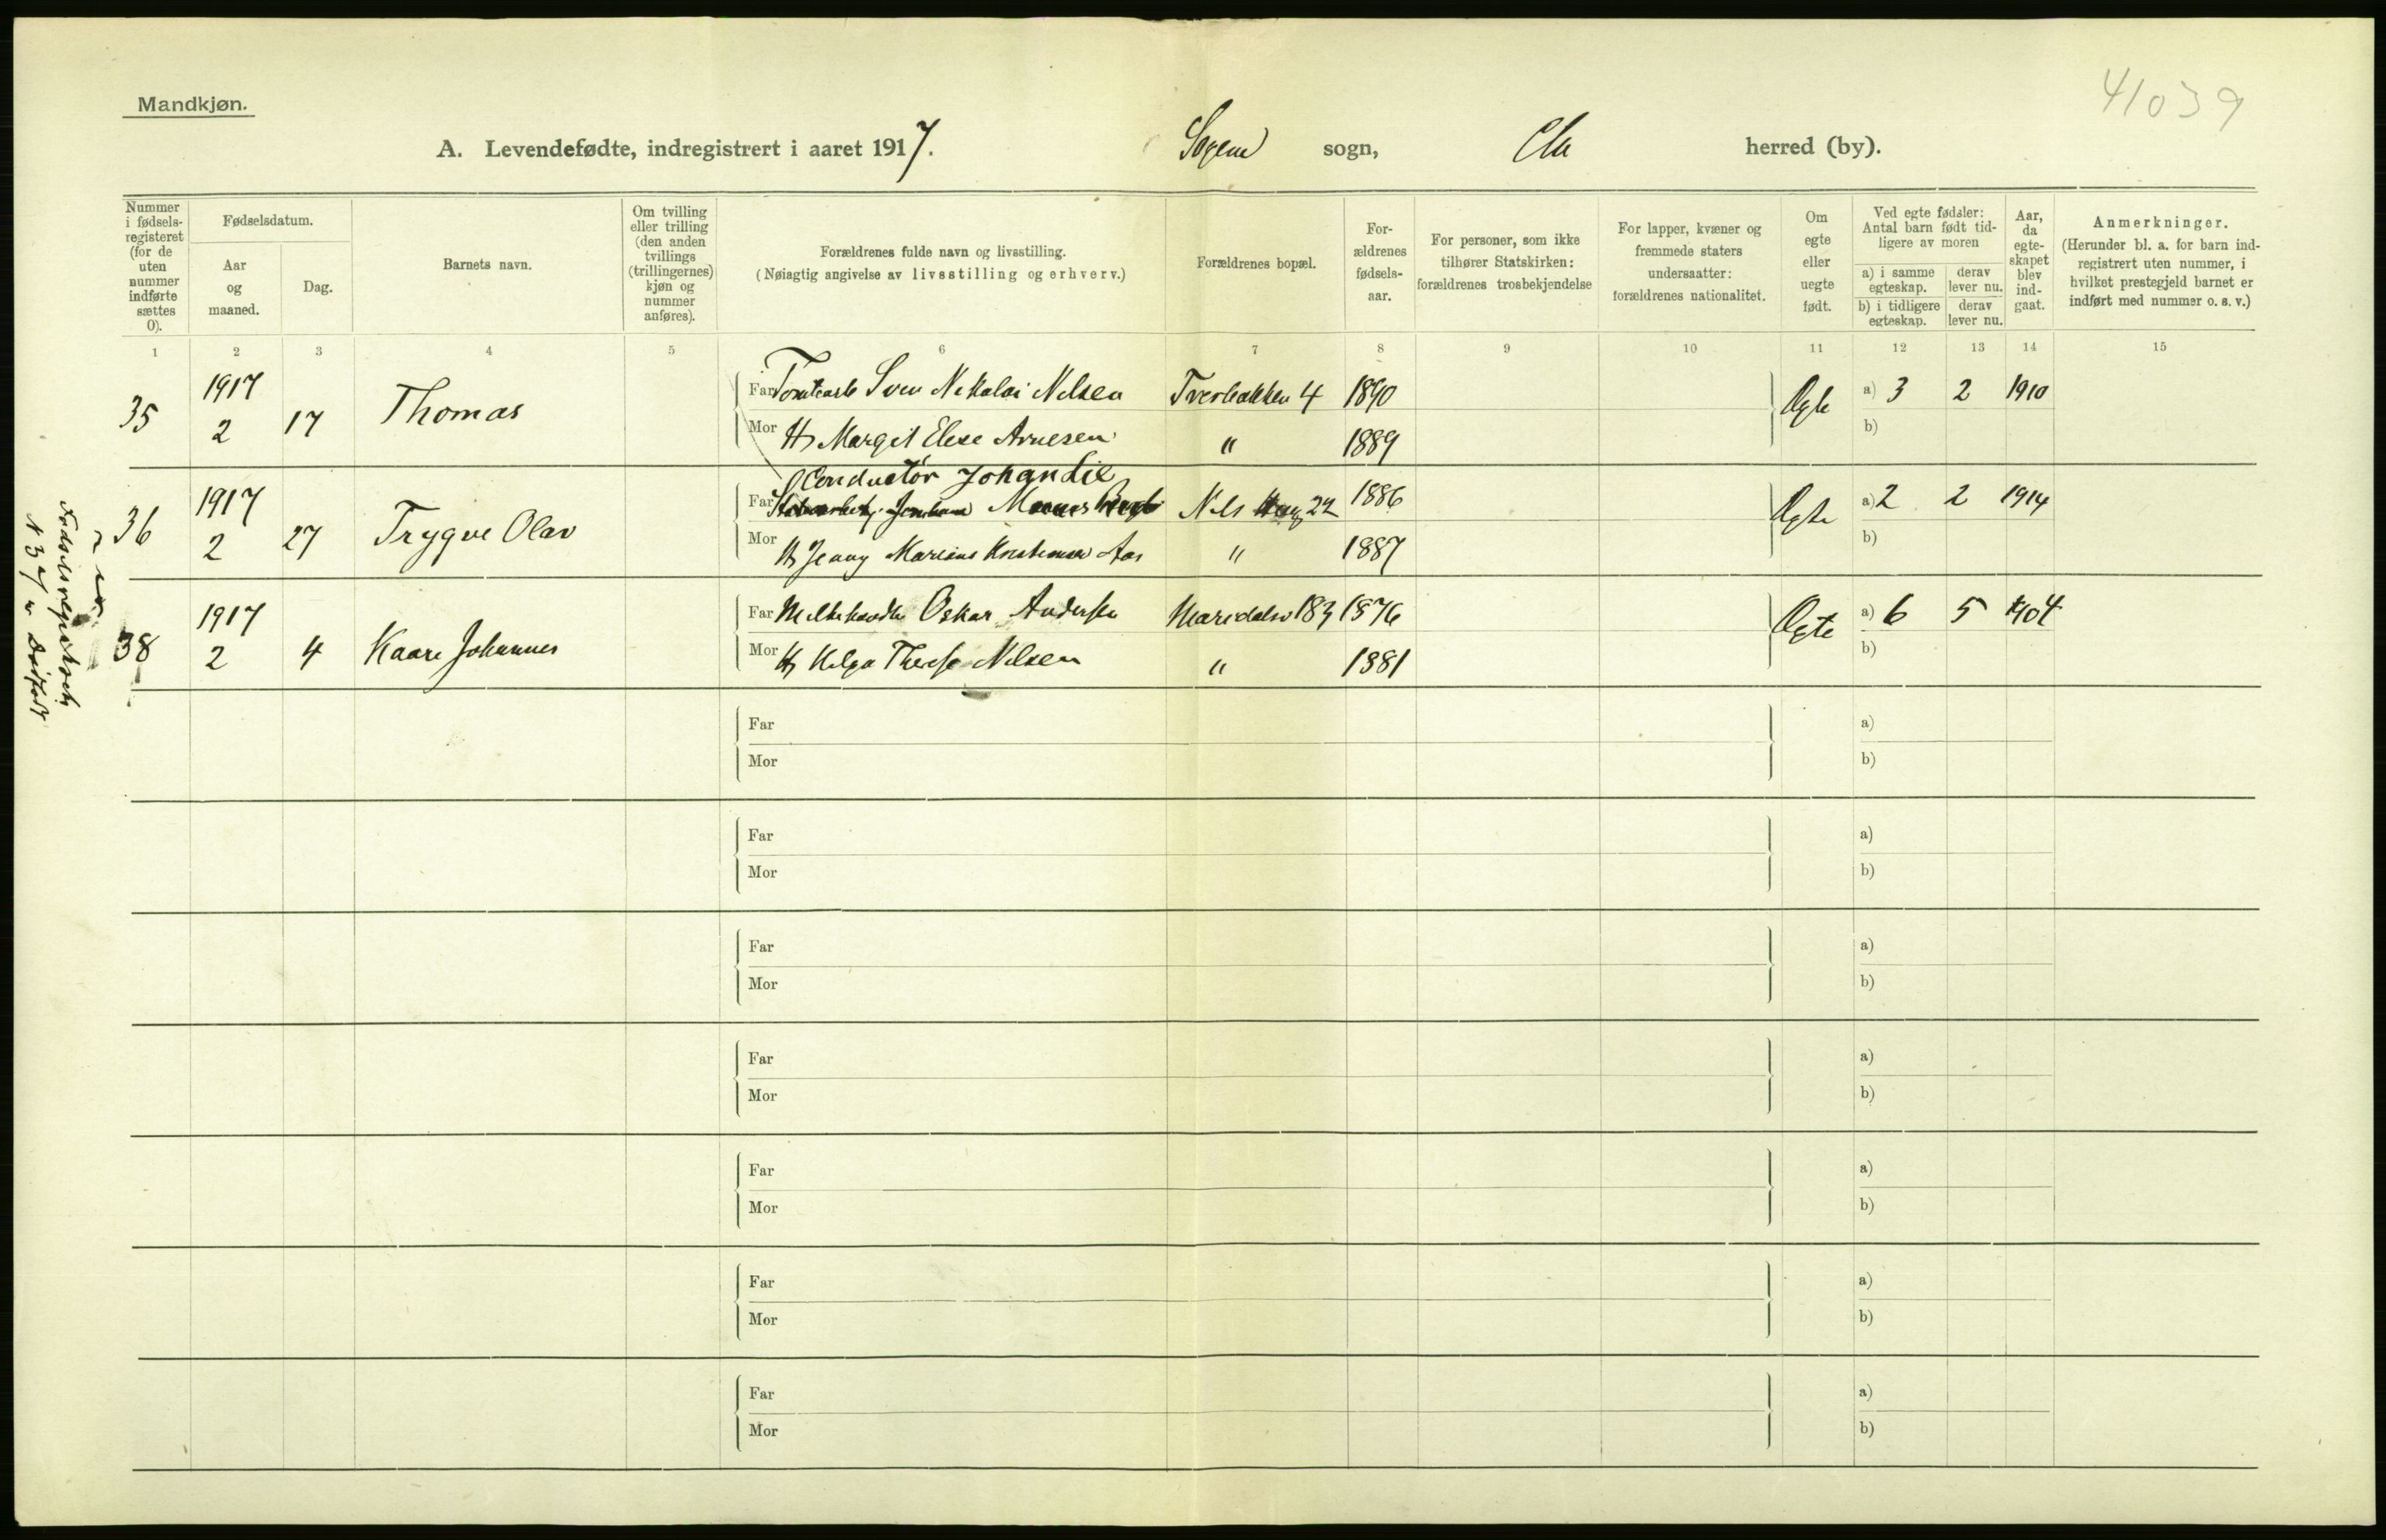 41039
Mandkjøn.
A. Levendefødte, indregistrert i aaret 1917. Sagene sogn, Cha herred (by).
Nummer i fødsels-registeret (for de uten nummer indførte sættes 0).
Fødselsdatum.
Aar og maaned.
Dag.
Barnets navn.
Om tvilling eller trilling (den anden tvillings (trillingernes) kjøn og nummer anføres).
Forældrenes fulde navn og livsstilling.
(Nøiagtig angivelse av livsstilling og erhverv.)
Forældrenes bopæl.
For-ældrenes fødsels-aar.
For personer, som ikke tilhører Statskirken: forældrenes trosbekjendelse
For lapper, kvæner og fremmede staters undersaatter: forældrenes nationalitet.
Om egte eller uegte født.
Ved egte fødsler: Antal barn født tid-ligere av moren
a) i samme egteskap.
derav lever nu.
b) i tidligere egteskap.
derav lever nu.
Aar, da egte-skapet blev ind-gaat.
Anmerkninger.
(Herunder bl. a. for barn ind-registrert uten nummer, i hvilket prestegjeld barnet er indført med nummer o. s. v.)
1 2 3 4 5 6 7 8 9 10 11 12 13 14 15
35 1917 2 17 Thomas
Far Sven Nikolai Nilsen Tverbakken 4 1890 Egte a) 3 2 1910
Mor H Margit Elise Arnesen " 1889 b)
Conductør Johan Lie
36 1917 2 27 Trygve Olav
Far Nils 22 1886 Egte a) 2 2 1914
Mor H Jenny Marie Kristensen Aas " 1887 b)
38 1917 2 4 Kaare Johannes
Far Melkehandler Oskar Andersen Maridalsv 183 1876 Egte a) 6 5 1904
Mor H Helga Therese Nilsen " 1881 b)
Far a)
Mor b)
Far a)
Mor b)
Far a)
Mor b)
Far a)
Mor b)
Far a)
Mor b)
Far a)
Mor b)
Far a)
Mor b)
N 37 er Dødfødt